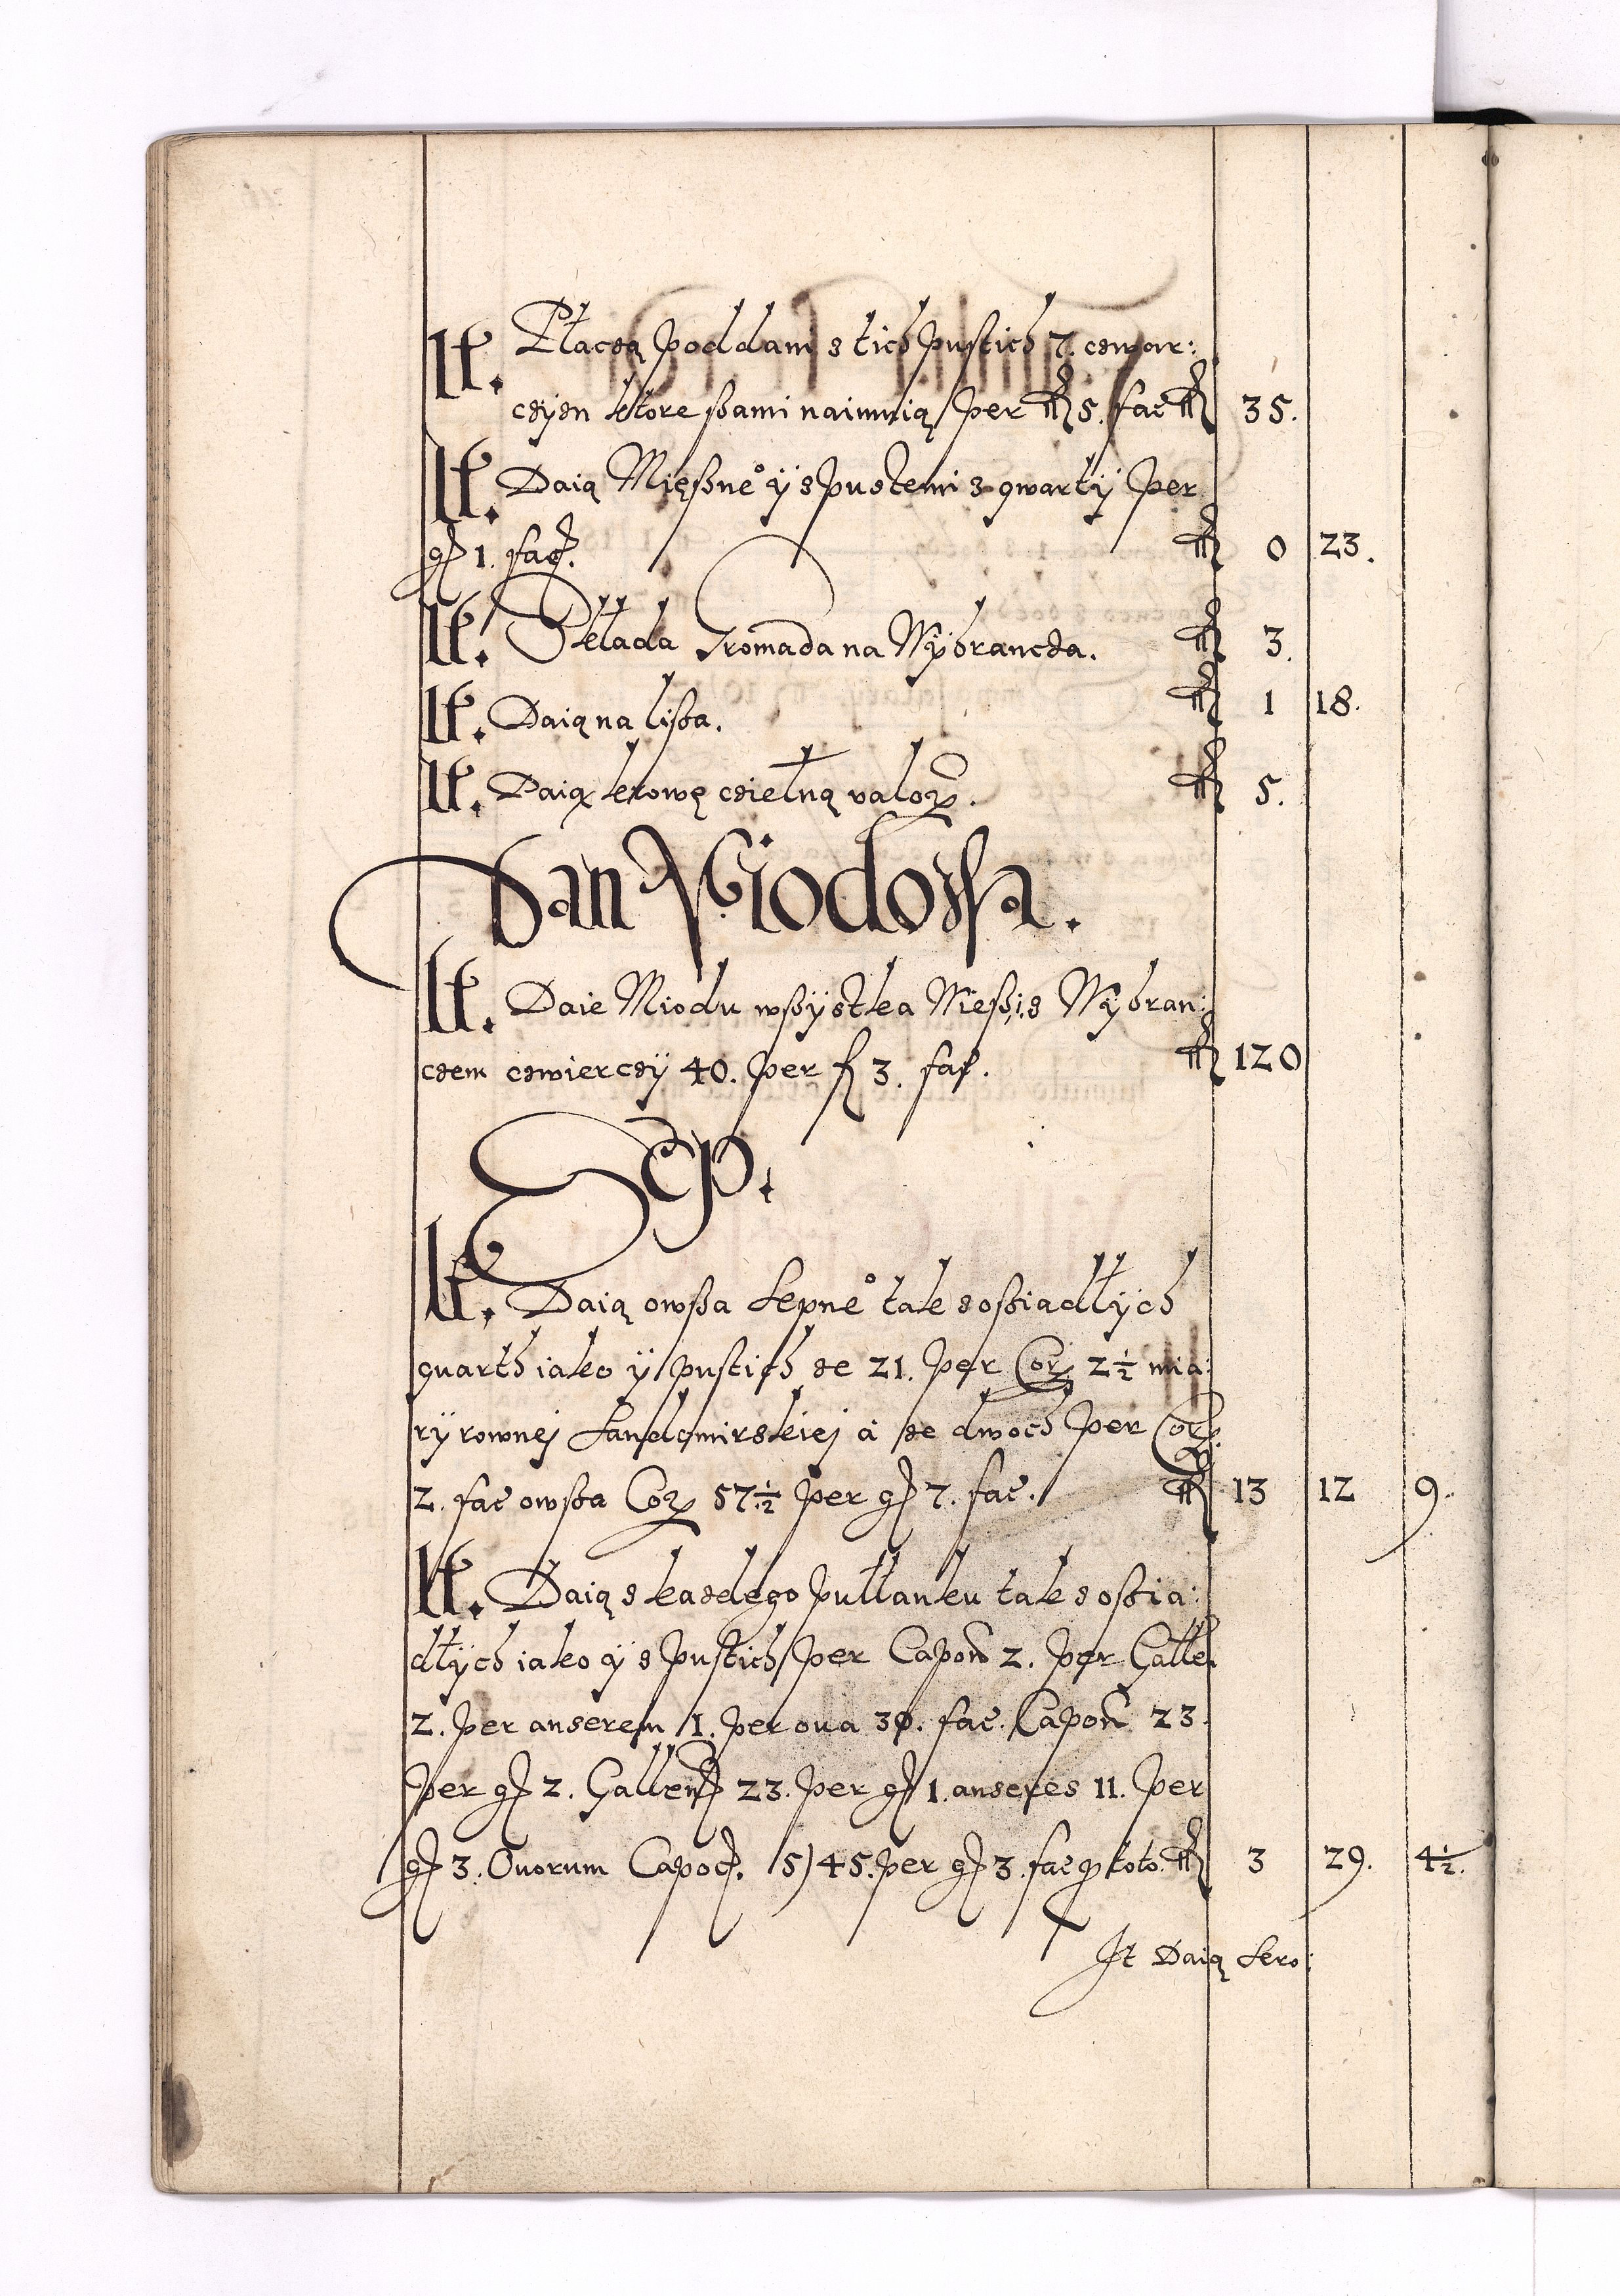 It. Płaczą poddani z tich pustich 7. czwar:
czyzn ktore szami naimuią per fl 5. fac fl 35.
It. Daią Mięszne° y z pustemi 3 qwarty per
gr 1. fac. fl 0 23.
It. Składa Gromada na Wybrancza. fl 3.
It. Daią na lisza. fl 1 18.
It. Daią krowę czielną valor. fl 5.
Dan Miodowa.
It. Daie Miodu wszystka Wiesz i z Wybran:
czem czwierczy 40. per fl 3. fac. fl 120
Sep.
It. Daią owsza Sepne° tak z osziadłych
quarth iako y pustich ze 21. per Cor 2½ mia:
ry rownej Sandomirskiej a ze dwoch per Cor.
2. fac owsza Cor 57.½ per gr 7. fac. fl 13 12 9.
It. Daią z kazdego pułłanku tak z oszia:
dłych iako y z pustich per Capon 2. per Gallen
2. per anserem 1. per oua 30. fac. Capon 23.
per gr 2. Gallen 23. per gr 1. anseres 11. per
gr 3. Ouorum Capoc. 5) 45. per gr 3. fac p toto. fl 3 29. 4½.
It Daią Sero: